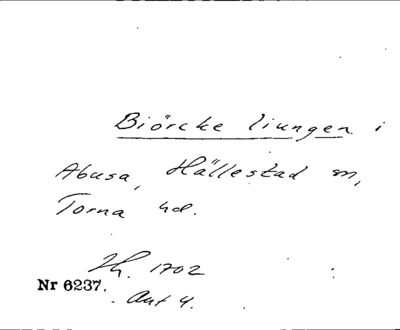 Biörcke liungen i
Abusa, Hällestad sn,
Torna hd.
Lh. 1702
Nr 6237.
Akt 4.